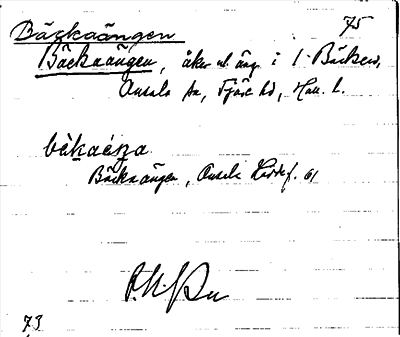 Bäckaängen 75
Bäckaängen, åker o. äng i 1 Bäcken,
Onsala sn, Fjäre hd, Hall. l.
Bäckaängen, Onsala Jordef. 61
73